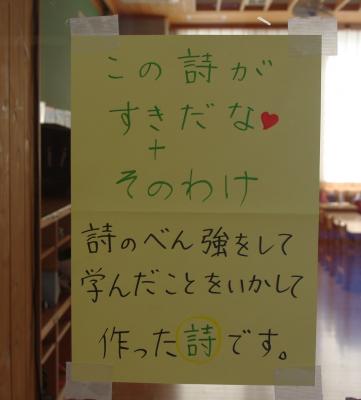 この詩が
すきだな
+
そのわけ
詩のべん強をして
学んだことをいかして
作った詩です。